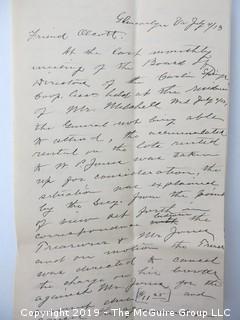 Glencarlyn Va July 9/13
Friend Olcott:
At the last monthly
meeting of the Board of
Directors of the Carlin Springs
Coop. Assn. held at the residence
of Mr. Mitchell Wed July 9/13,
the General not being able
to attend, the accumulated
rental on the lots rented
to W P Jones was taken
up for consideration, the
situation was explained
by the Secy. from the point
of view set forth
correspondence between the
Treasurer & Mr. Jones
and on motion the Treas
was directed to cancel
the charge on his books
against Mr. Jones for the
and
Copyright 2019 - Period Paper.com